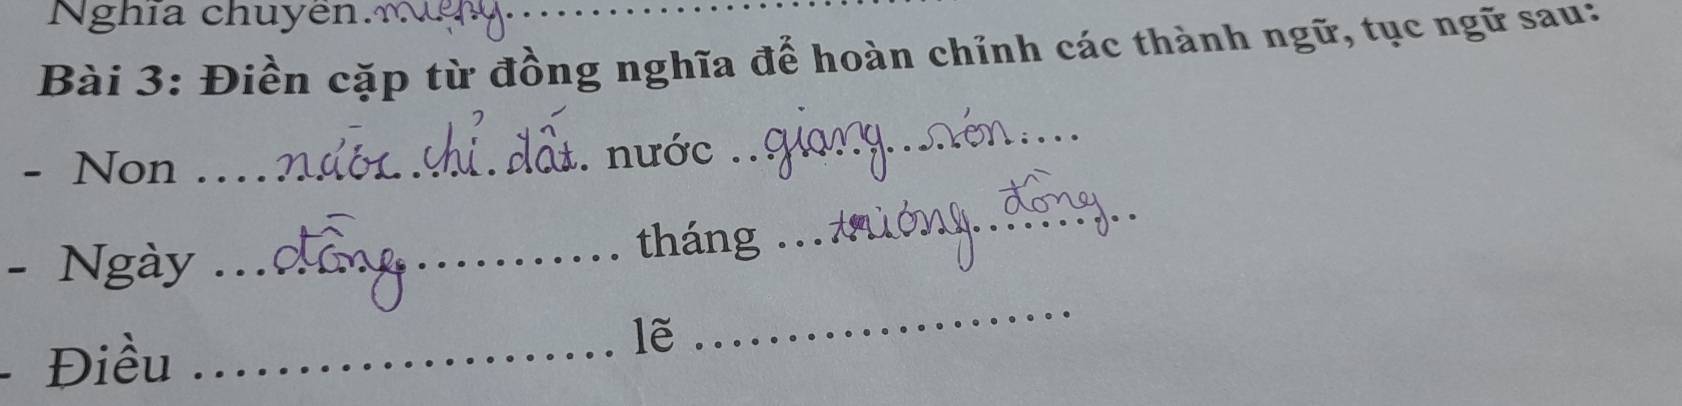 Nghĩa chuyển. miệng
Bài 3: Điền cặp từ đồng nghĩa để hoàn chỉnh các thành ngữ, tục ngữ sau:
- Non .... nước chỉ đất. nước .. giang .. són ....
- Ngày ... đồng ............ tháng ... trường đồng ..
- Điều ........................ lẽ ........................